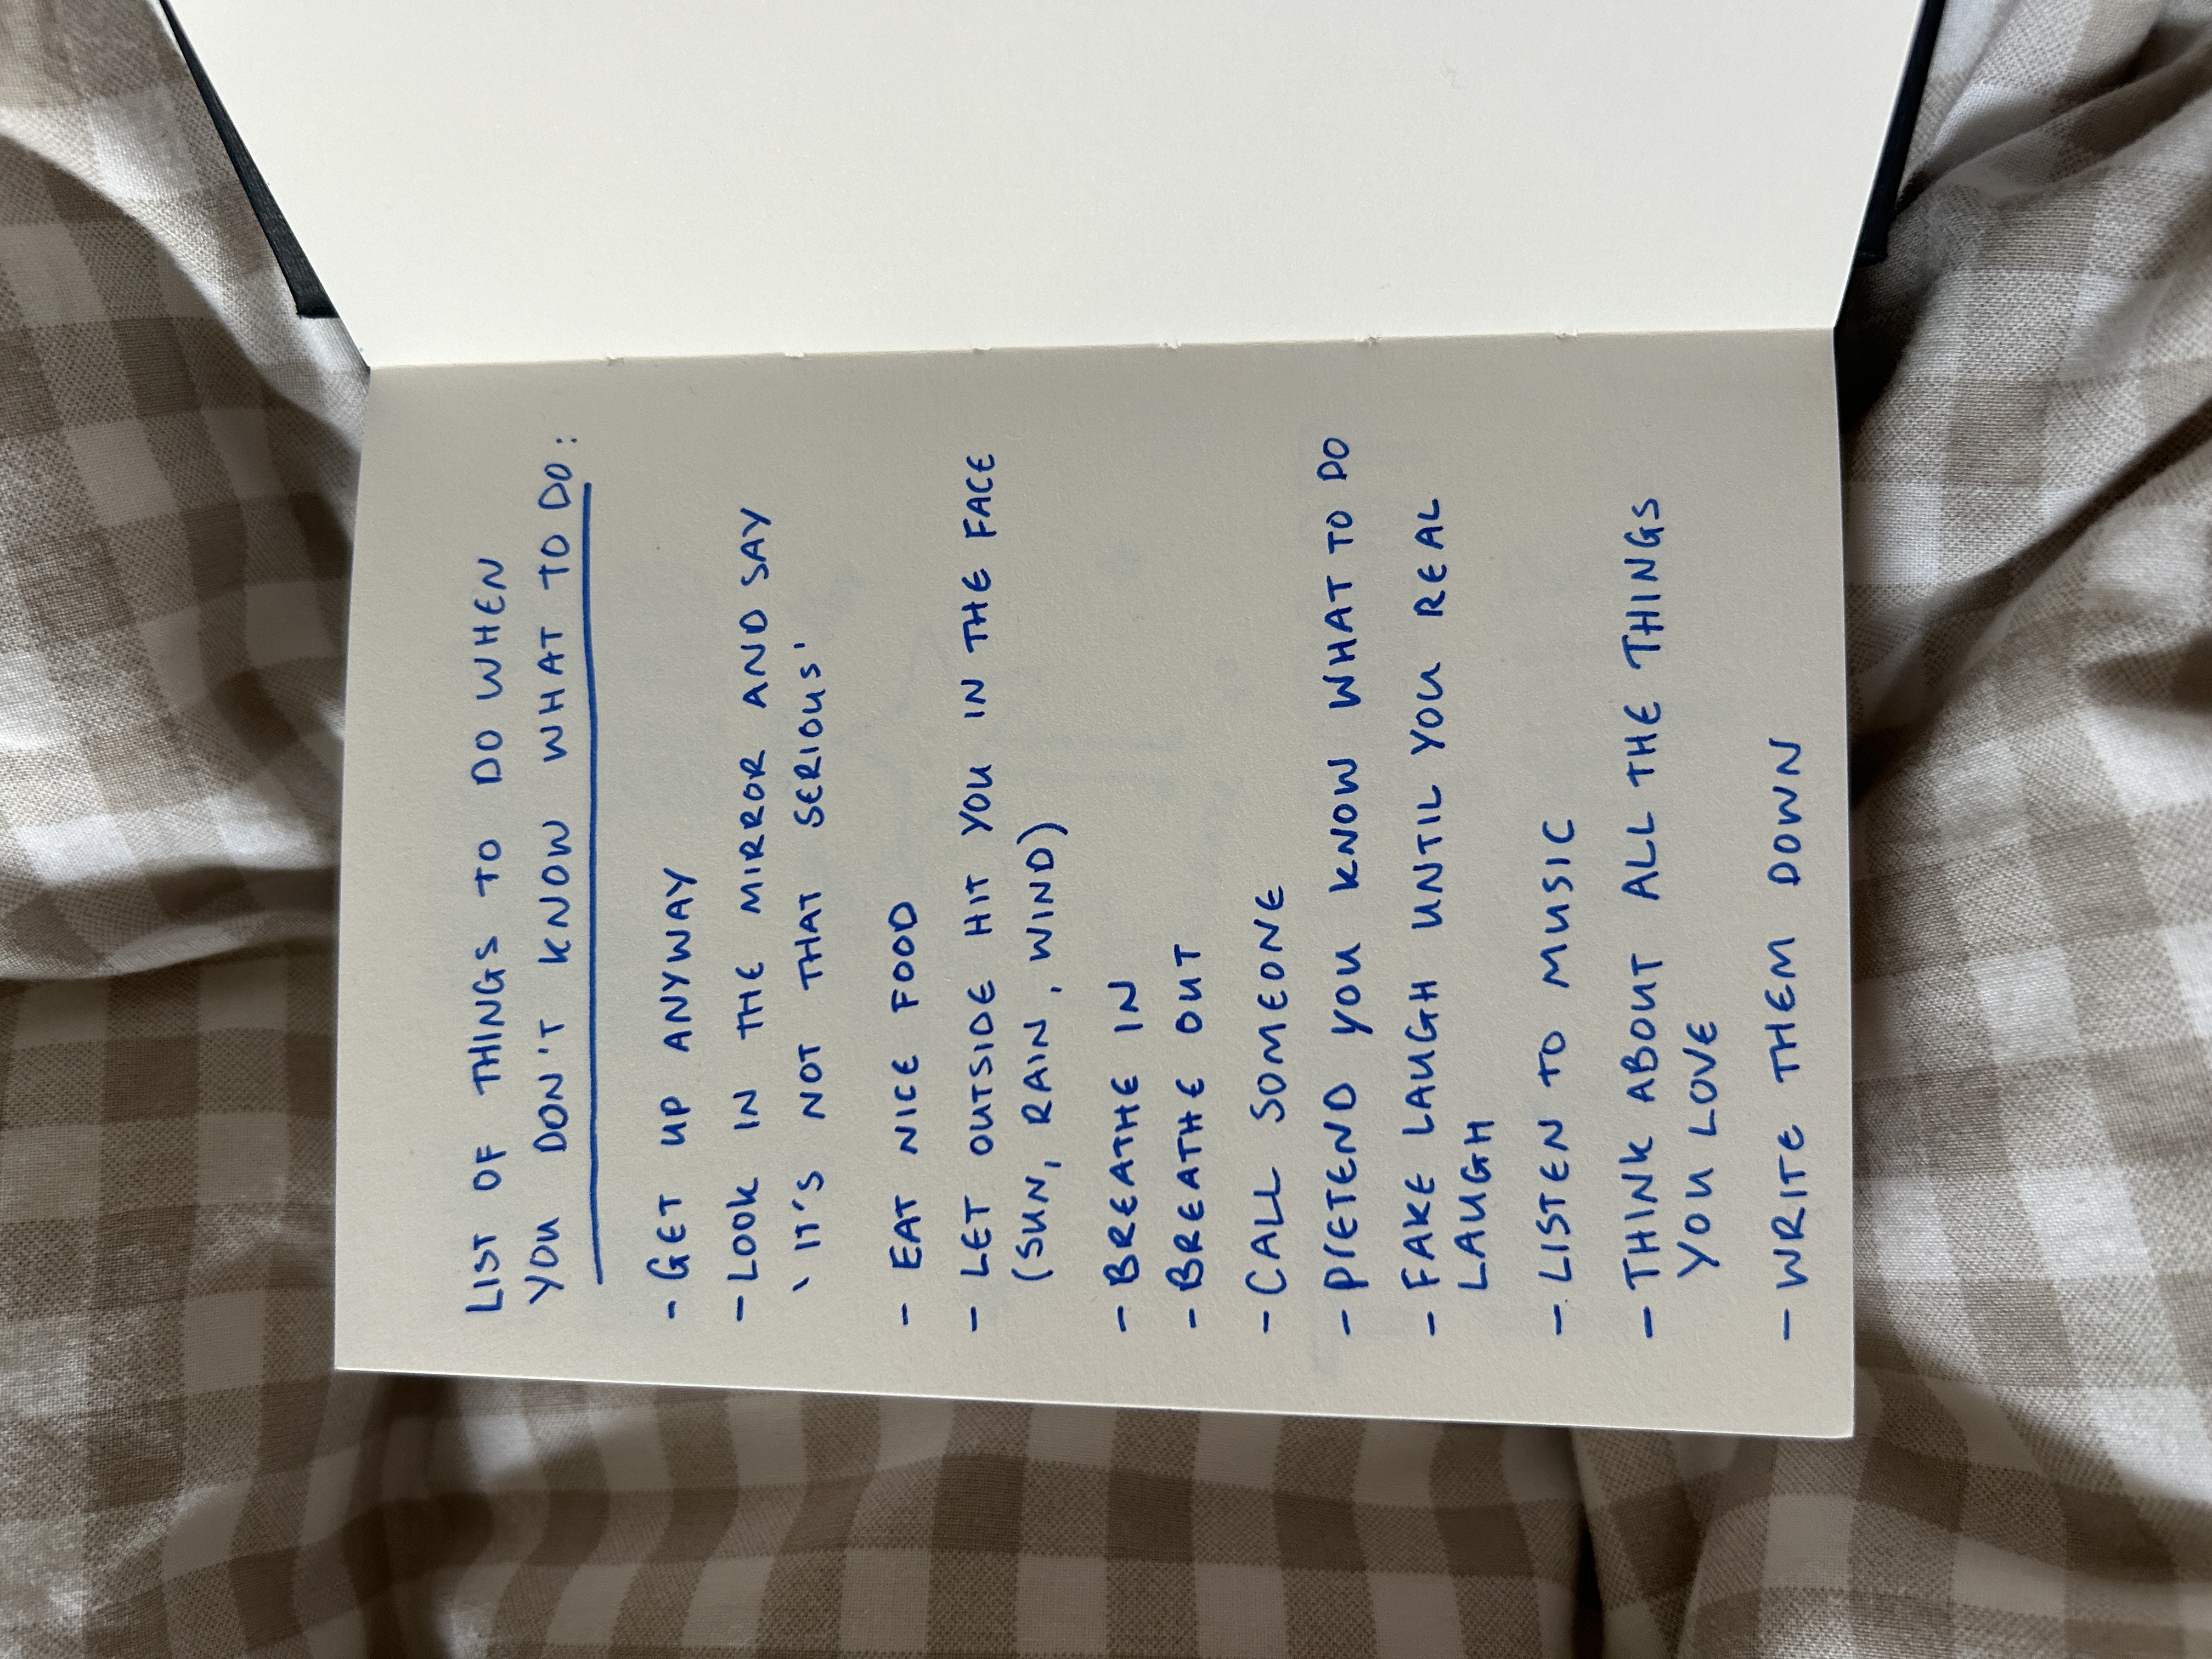 LIST OF THINGS TO DO WHEN
YOU DON'T KNOW WHAT TO DO:
- GET UP ANYWAY
- LOOK IN THE MIRROR AND SAY
'IT'S NOT THAT SERIOUS'
- EAT NICE FOOD
- LET OUTSIDE HIT YOU IN THE FACE
(SUN, RAIN, WIND)
- BREATHE IN
- BREATHE OUT
- CALL SOMEONE
- PRETEND YOU KNOW WHAT TO DO
- FAKE LAUGH UNTIL YOU REAL
LAUGH
- LISTEN TO MUSIC
- THINK ABOUT ALL THE THINGS
YOU LOVE
- WRITE THEM DOWN